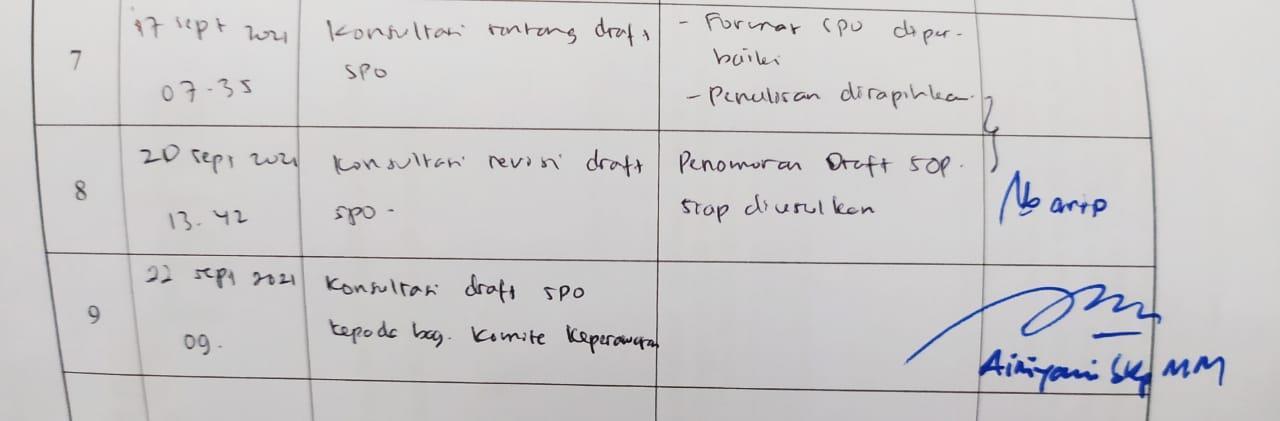 7
17 sept 2021
07.35
Konsultasi tentang draft
SPO
- Format SPO diper-
baiki
- Penulisan dirapihkan
8
20 sept 2021
13.42
Konsultasi revisi draft
SPO -
Penomoran Draft SOP.
siap diusulkan
arip
9
22 sept 2021
09.
Konsultasi draft SPO
kepada bag. Komite Keperawatan
Airiyani SKp MM